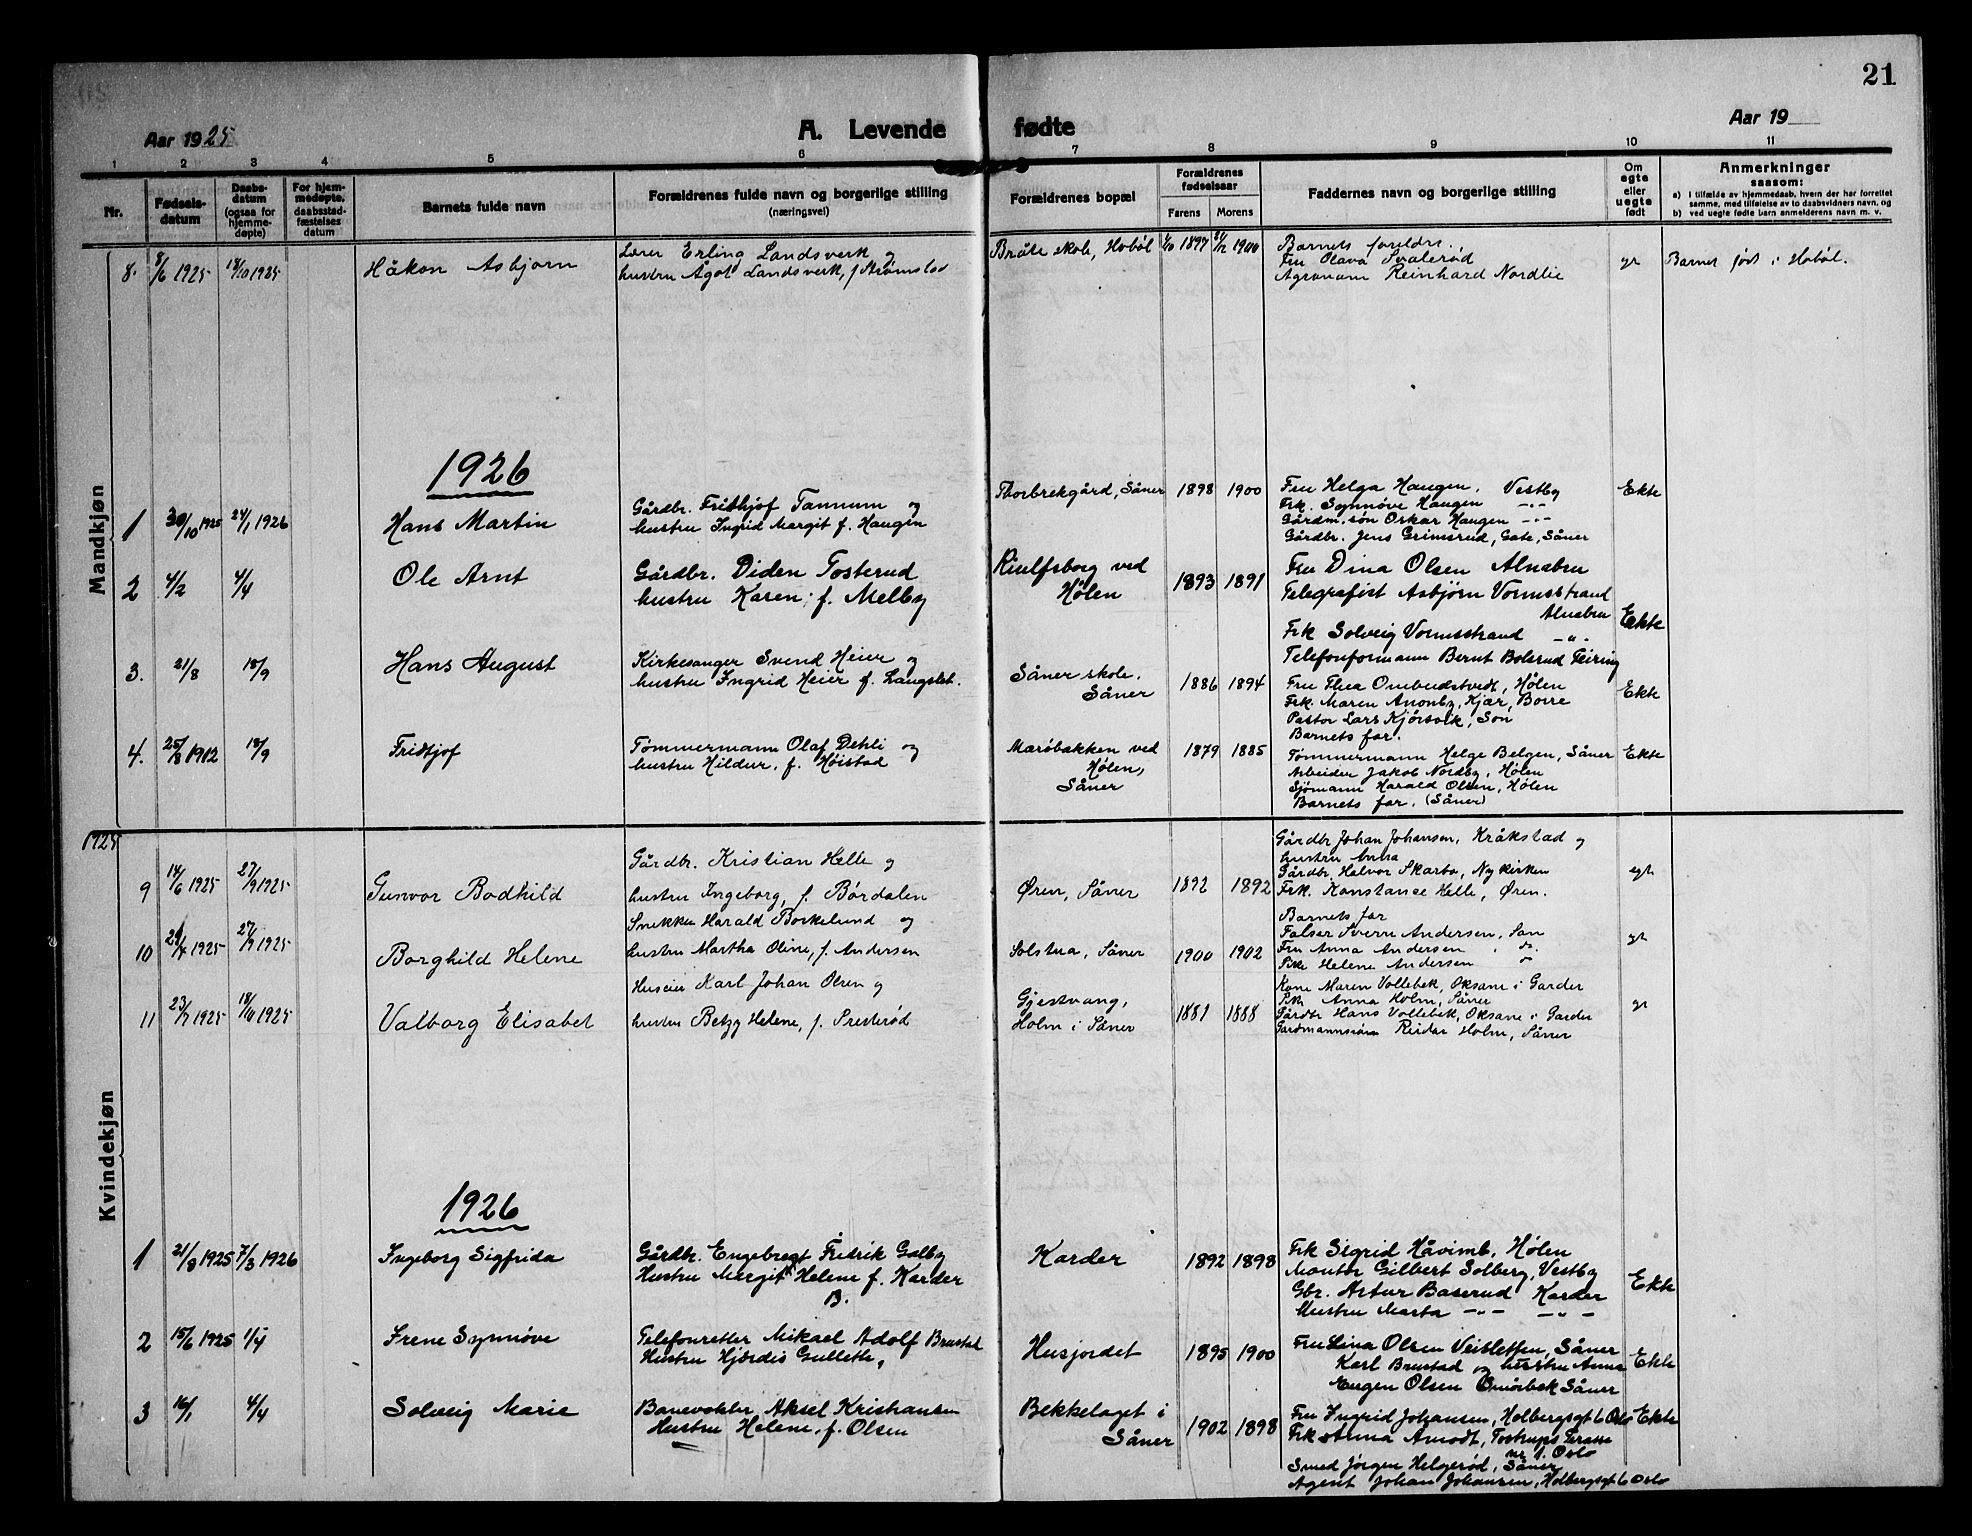 21
Aar 1925
A. Levende fødte
Aar 19
1 2 3 4 5 6 7 8 9 10 11
Nr.
Fødsels-
datum
Daabs-
datum
(ogsaa for
hjemme-
døpte)
For hjem-
medøpte,
daabsstad-
fæstelses
datum
Barnets fulde navn
Forældrenes fulde navn og borgerlige stilling
(næringsvei)
Forældrenes bopæl
Forældrenes
fødselsaar
Farens Morens
Faddernes navn og borgerlige stilling
Om
egte
eller
uegte
født
Anmerkninger
saasom:
a) I tilfælde av hjemmedaab, hvem der har forrettet
samme, med tilføielse av to daabsvidners navn, og
b) ved uegte fødte barn anmelderens navn m. v.
Mandkjøn
8. 8/6 1925 18/10 1925
Håkon Asbjørn
Lærer Erling Landsverk og
hustru Ågot Landsverk, f. Strømstad
Bråte skole, Hobøl
1897 1900
Barnets foreldre.
Fru Olava Svalerød
Agronom Reinhard Nordlie
Barnet født i Hobøl.
1926
1 30/10 1925 24/1 1926
Hans Martin
Gårdbr. Fridthjof Tannum og
hustru Ingrid Margit f. Haugen
Thorbrekgård, Såner
1898 1900
Fru Helga Haugen, Vestby
Frk. Synnøve Haugen -"-
Gårdm.søn Oskar Haugen -"-
Gårdbr. Jens Grimsrud, Gate, Såner
Ekte
2 4/2 4/4
Ole Arnt
Gårdbr. Diden Tosterud
hustru Karen, f. Melby
Riulfsborg ved
Hølen
1893 1891
Fru Dina Olsen Alnabru
Telegrafist Asbjørn Vormsstrand
Alnabru
Frk Solveig Vormsstrand -"-
Telefonformann Bernt Bolerud Feiring
Ekte
3. 21/8 18/9
Hans August
Kirkesanger Svend Heier og
hustru Ingrid Heier f. Langslet.
Såner skole,
Såner
1886 1894
Fru Thea Ombudstvedt, Hølen
Frk. Maren Anonby, Kjær, Borre
Pastor Lars Kjørsvik, Son
Barnets far.
Ekte
4. 25/8 1912 18/9
Fridtjof
Tømmermann Olaf Dehli og
hustru Hildur, f. Høistad
Marøbakken ved
Hølen,
Såner
1879 1885
Tømmermann Helge Belgen, Såner
Arbeider Jakob Nordby, Hølen
Sjømann Harald Olsen, Hølen
Barnets far. (Såner)
Ekte
1925
Kvindekjøn
9 14/6 1925 27/9 1925
Gunvor Bodhild
Gårdbr. Kristian Helle og
hustru Ingeborg, f. Børdalen
Øren, Såner
1892 1892
Gårdbr Johan Johansen, Kråkstad og
hustru Anna
Gårdbr. Halvor Skarbø, Nykirken
Frk. Konstanse Helle, Øren.
Barnets far
egt
10 1925 27/9 1925
Borghild Helene
Snekker Harald Borkelund og
hustru Martha Oline, f. Andersen
Solstua, Såner
1900 1902
Sverre Andersen, Son
Fru Anna Andersen do.
Helene Andersen
11 23/7 1925 18/10 1925
Valborg Elisabet
Huseier Karl Johan Olsen og
hustru Betzy Helene, f. Presterød
Gjestvang,
Holm i Såner
1881 1888
Kone Maren Vollebek, Oksane i Garder
Frk Anna Holm, Såner
Gårdbr Hans Vollebek, Oksane i Garder
Gardmannssøn Reidar Holm, Såner
1926
1 21/8 1925 7/3 1926
Ingeborg Sigfrida
Gårdbr. Engebregt Fredrik Galby
Hustru Margit Helene f. Karder
B.
Karder
1892 1898
Frk Sigrid Håvimb, Hølen
Montør Gilbert Solberg, Vestby
Gbr. Artur Baserud Karder
Hustru Marta -"- -"-
Ekte
2 15/6 1925 1/4
Irene Synnøve
Telefonretter Mikael Adolf Brustad
Hustru Hjørdis Gullette,
Husjordet
1895 1900
Fru Lina Olsen Veisletten, Såner
Karl Brustad og hustru Anna
Eugen Olsen Ømørbek Såner
Ekte
3 16/1 4/4
Solveig Marie
Banevokter Aksel Kristiansen
Hustru Helene, f. Olsen
Bekkelaget i
Såner
1902 1898
Fru Ingrid Johansen, Holbergsgt 6 Oslo
Frk Anna Amodt, Tostrups Terasse
nr 1. Oslo
Smed Jørgen Helgerød, Såner
Agent Johan Johansen, Holbergsgt 6 Oslo
Ekte